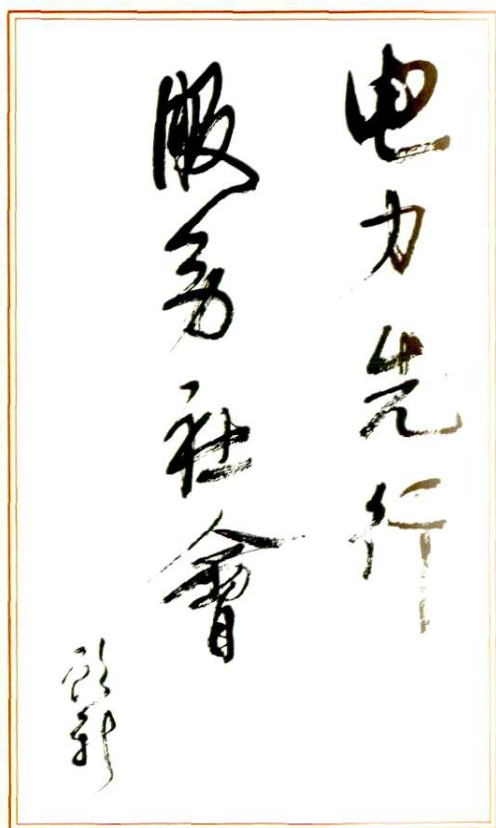 电力先行
服务社會